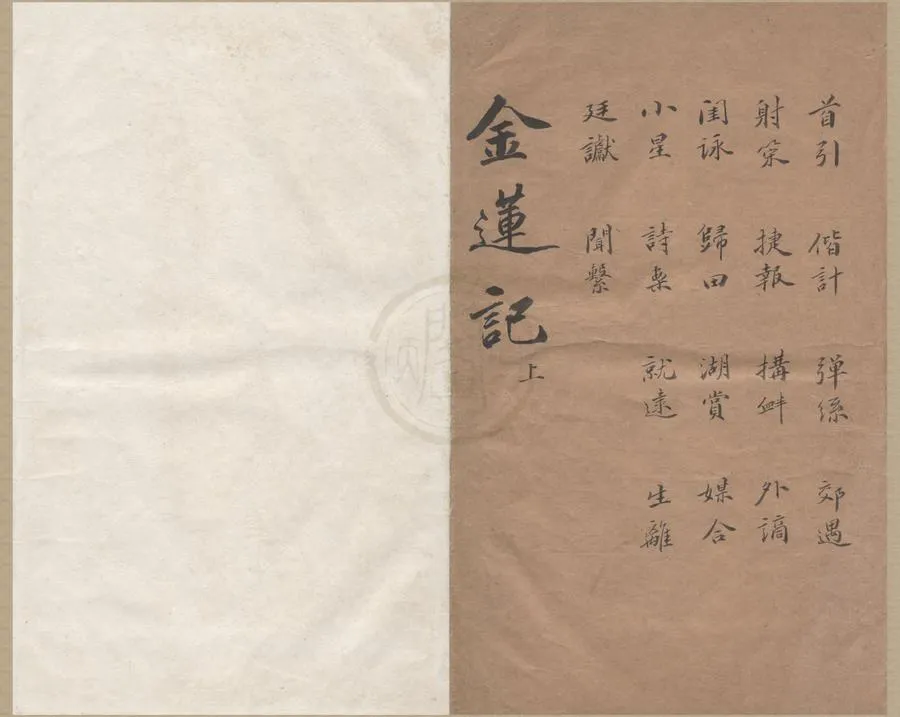 首引 偕計 弹絲 郊遇
射策 捷報 搆衅 外謫
闺詠 歸田 湖賞 媒合
小星 詩案 就逮 生離
廷讞 聞繫
金蓮記 上